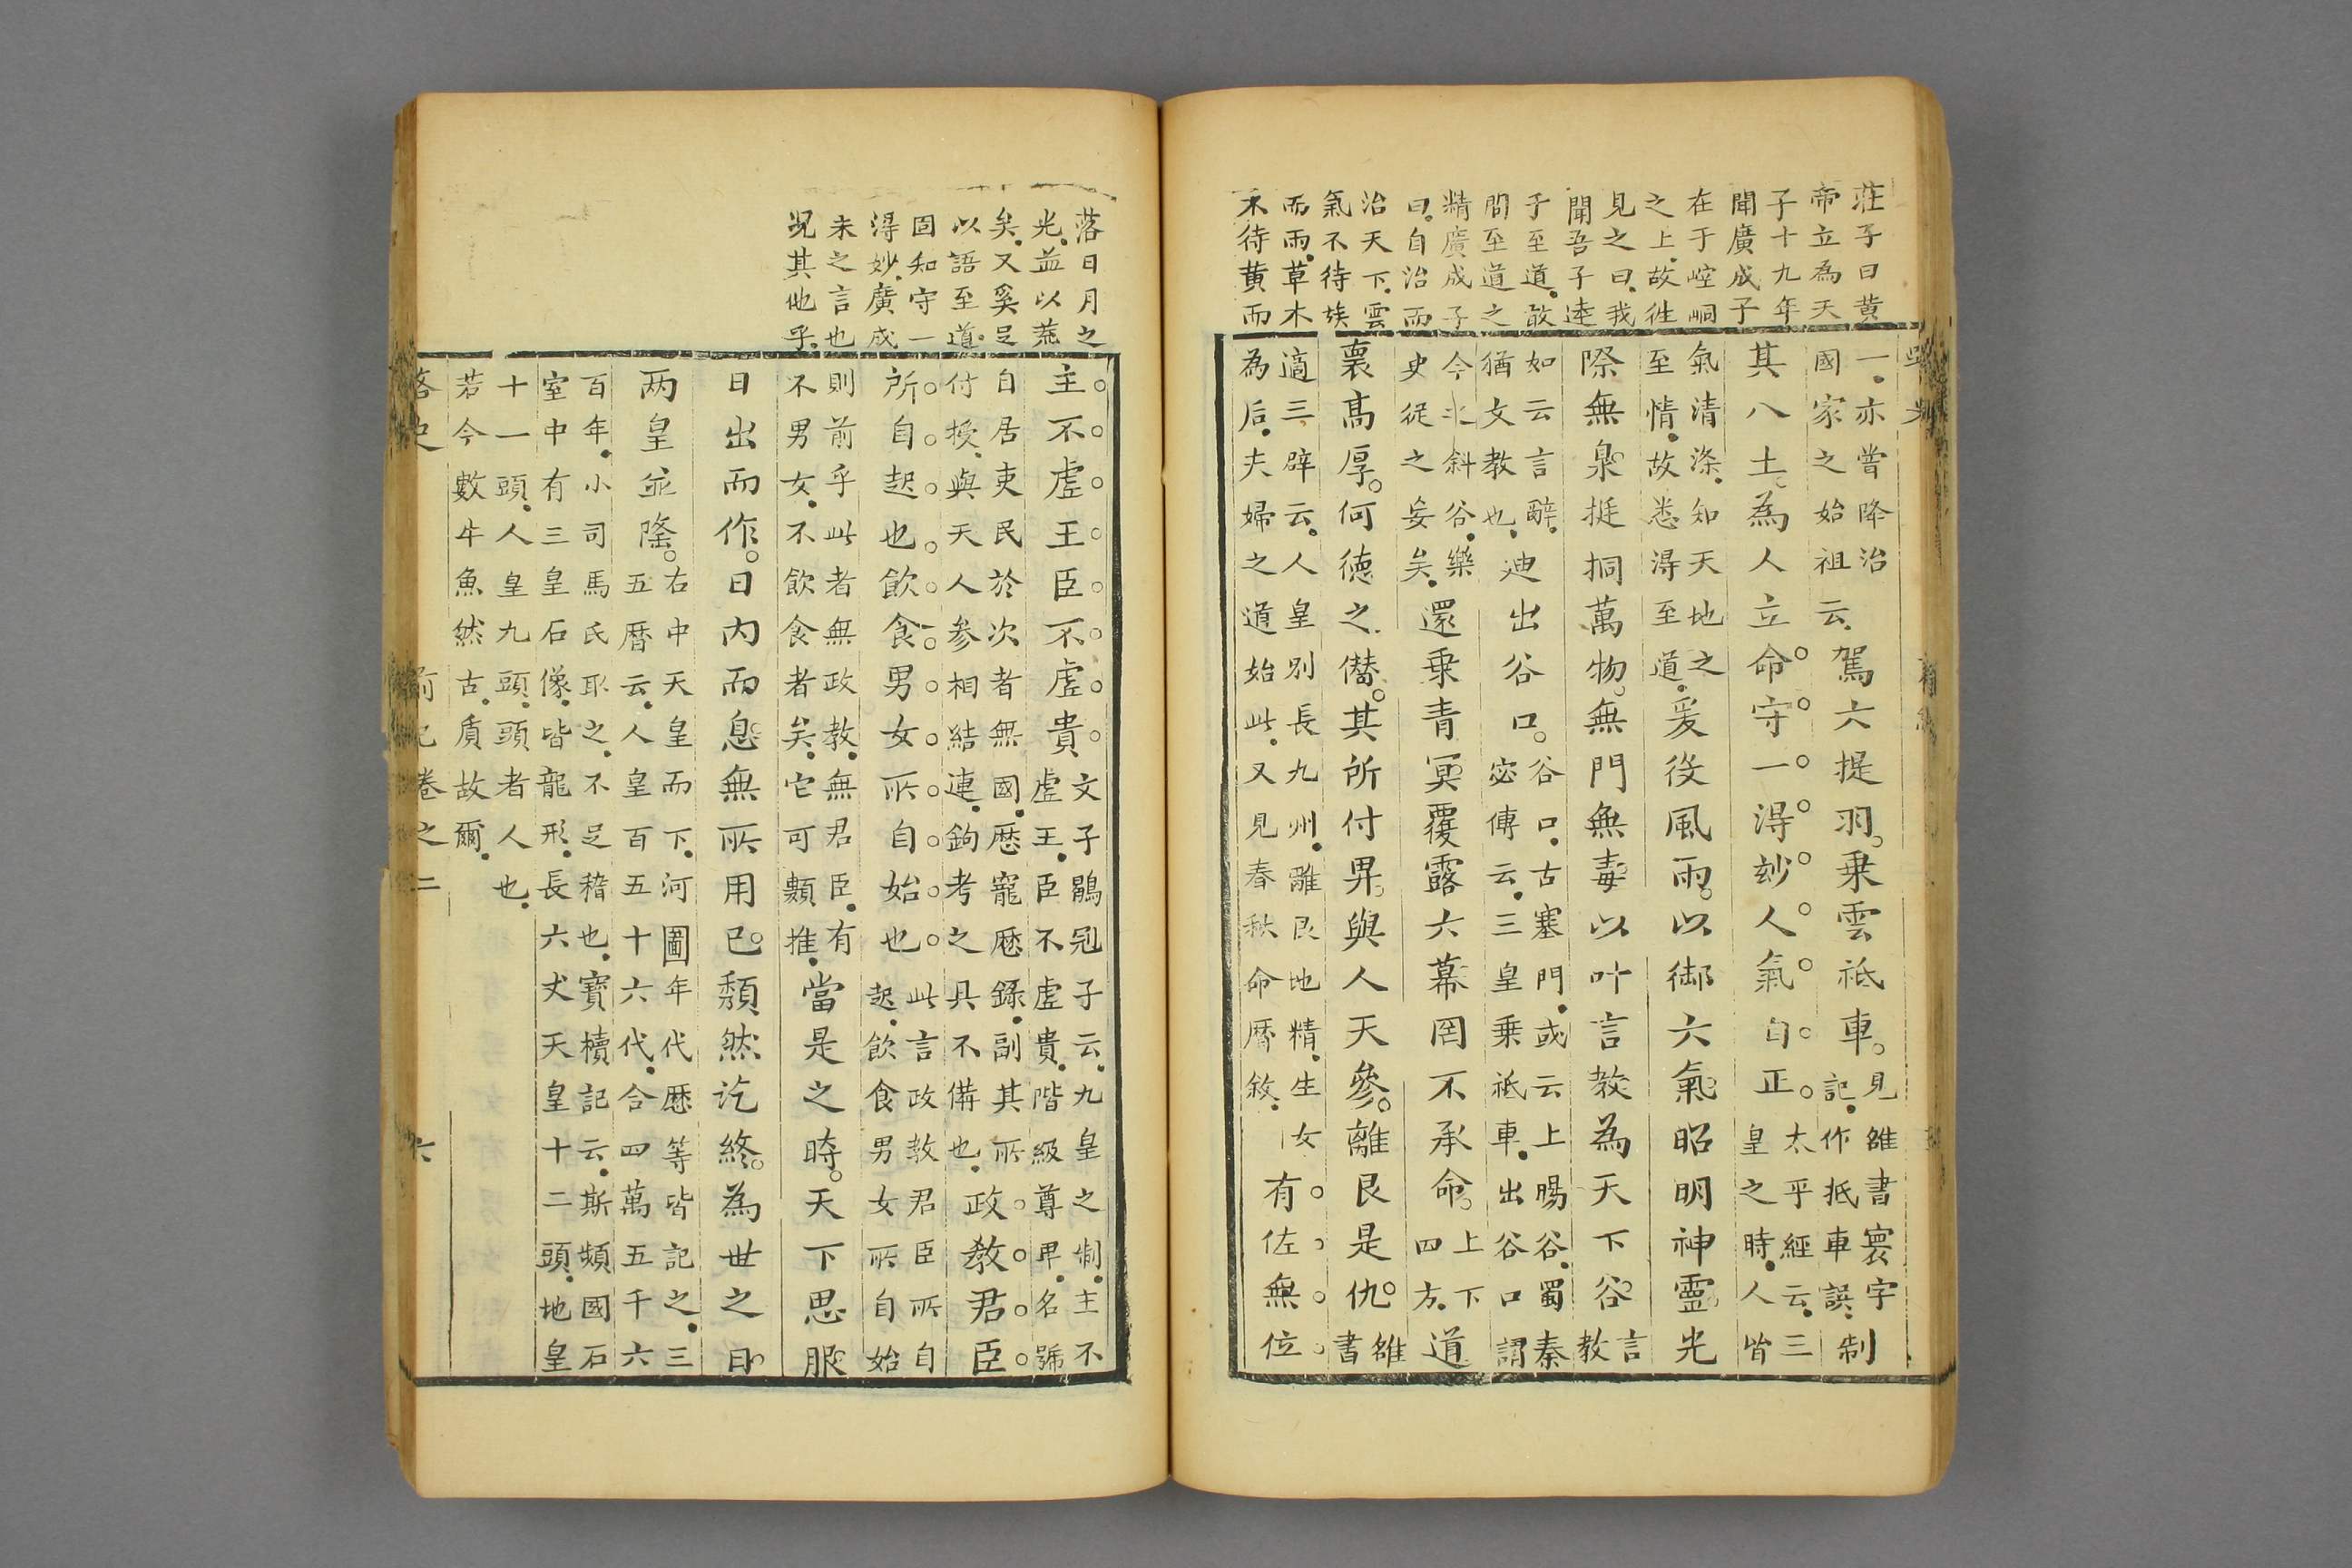 莊子曰黄
帝立為天
子十九年
聞廣成子
在于崆峒
之上故徃
見之曰我
聞吾子逹
于至道敢
問至道之
精廣成子
曰自治而
治天下雲
氣不待族
而雨草木
不待黄而
一亦嘗降治
國家之始祖云駕六提羽乗雲祗車見雒書寰宇
記作抵車誤制
其八土為人立命守一得玅人氣自正太平經云三
皇之時人皆
氣清滌知天地之
至情故悉得至道爰役風雨以御六氣昭明神靈光
際無臬挺挏萬物無門無毒以叶言教為天下谷言
教
如云言辭
猶文教也廸出谷口谷口古塞門或云上暘谷蜀秦
宓傳云三皇乗祗車出谷口謂
今之斜谷樂
史從之妄矣還乗青冥覆露六幕罔不承命上下
四方道
褱髙厚何德之僣其所付畀與人天參離艮是仇雒
書
適三辟云人皇別長九州離艮地精生女
為后夫婦之道始此又見春秋命厯敘有佐無位
落日月之
光益以荒
矣又奚足
以語至道
固知守一
得妙廣成
未之言也
况其他乎
主不虗王臣不虗貴文子鶡冠子云九皇之制主不
虗王臣不虗貴階級尊卑名號
自居吏民於次者無國厯寵厯錄副其所
付授與天人參相結連鉤考之具不備也政教君臣
所自起也飲食男女所自始也此言政教君臣所自
起飲食男女所自始
則前乎此者無政教無君臣有
不男女不飲食者矣它可類推當是之時天下思服
日出而作日内而息無所用已頽然汔終為世之日
两皇並隆右中天皇而下河圖年代厯等皆記之三
五厯云人皇百五十六代合四萬五千六
百年小司馬氏取之不足稽也寳櫝記云斯頻國石
室中有三皇石像皆龍形長六丈天皇十二頭地皇
十一頭人皇九頭頭者人也
若今數牛魚然古質故爾
路史
前紀卷之二
六